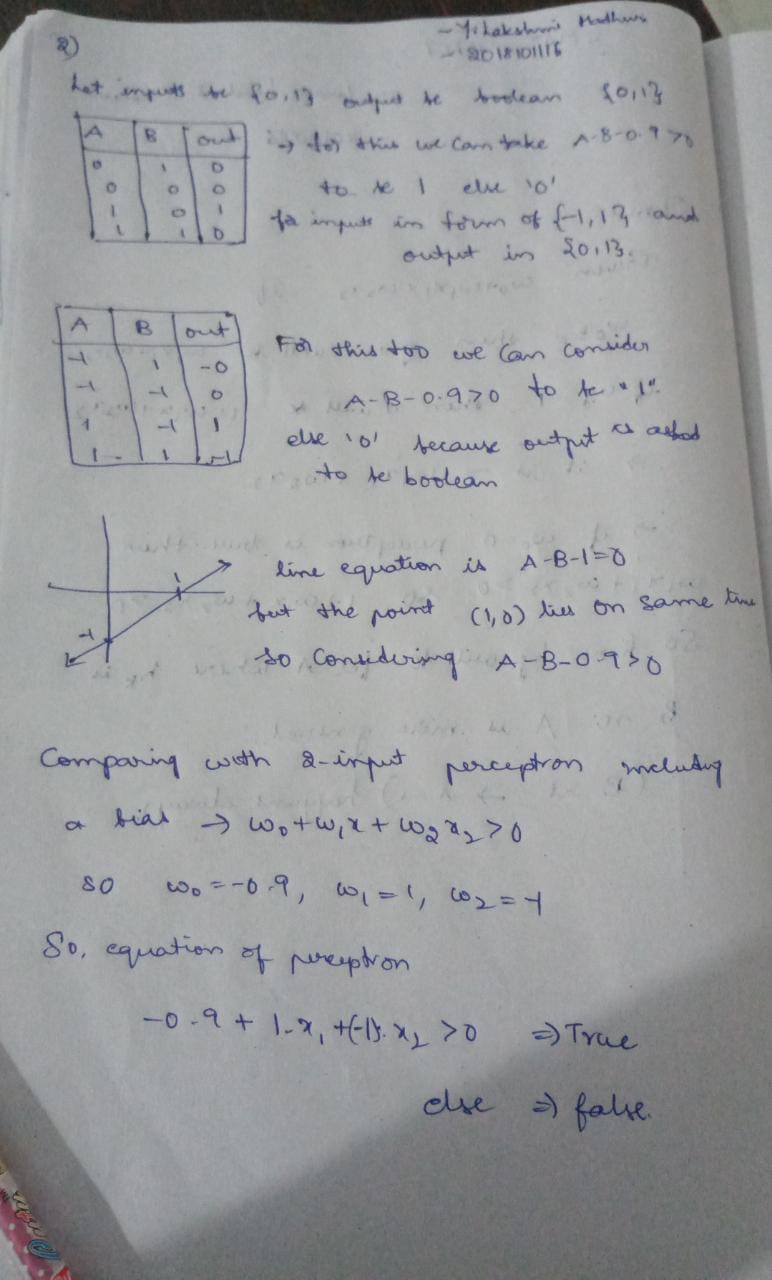 - Y. Lakshmi Madhuri
- 2018101116
2)
Let inputs be {0,1} output be boolean {0,1}
A B out
0 1 0
0 0 0
1 0 1
1 1 0
⇒ for this we can take A-B-0.9>0
to be 1 else '0'
for inputs in form of {-1,1} and
output in {0,1}.
A B out
-1 1 -0
-1 -1 0
1 -1 1
1 1 -1
For this too we can consider
A-B-0.9>0 to be "1"
else '0' because output is asked
to be boolean
1
-1
line equation is A-B-1=0
but the point (1,0) lies on same line
so considering A-B-0.9>0
Comparing with 2-input perceptron including
a bias → w₀+w₁x+w₂x₂>0
so w₀=-0.9, w₁=1, w₂=-1
So, equation of perceptron
-0.9+1.x₁+(-1).x₂>0 ⇒ True
else ⇒ false.